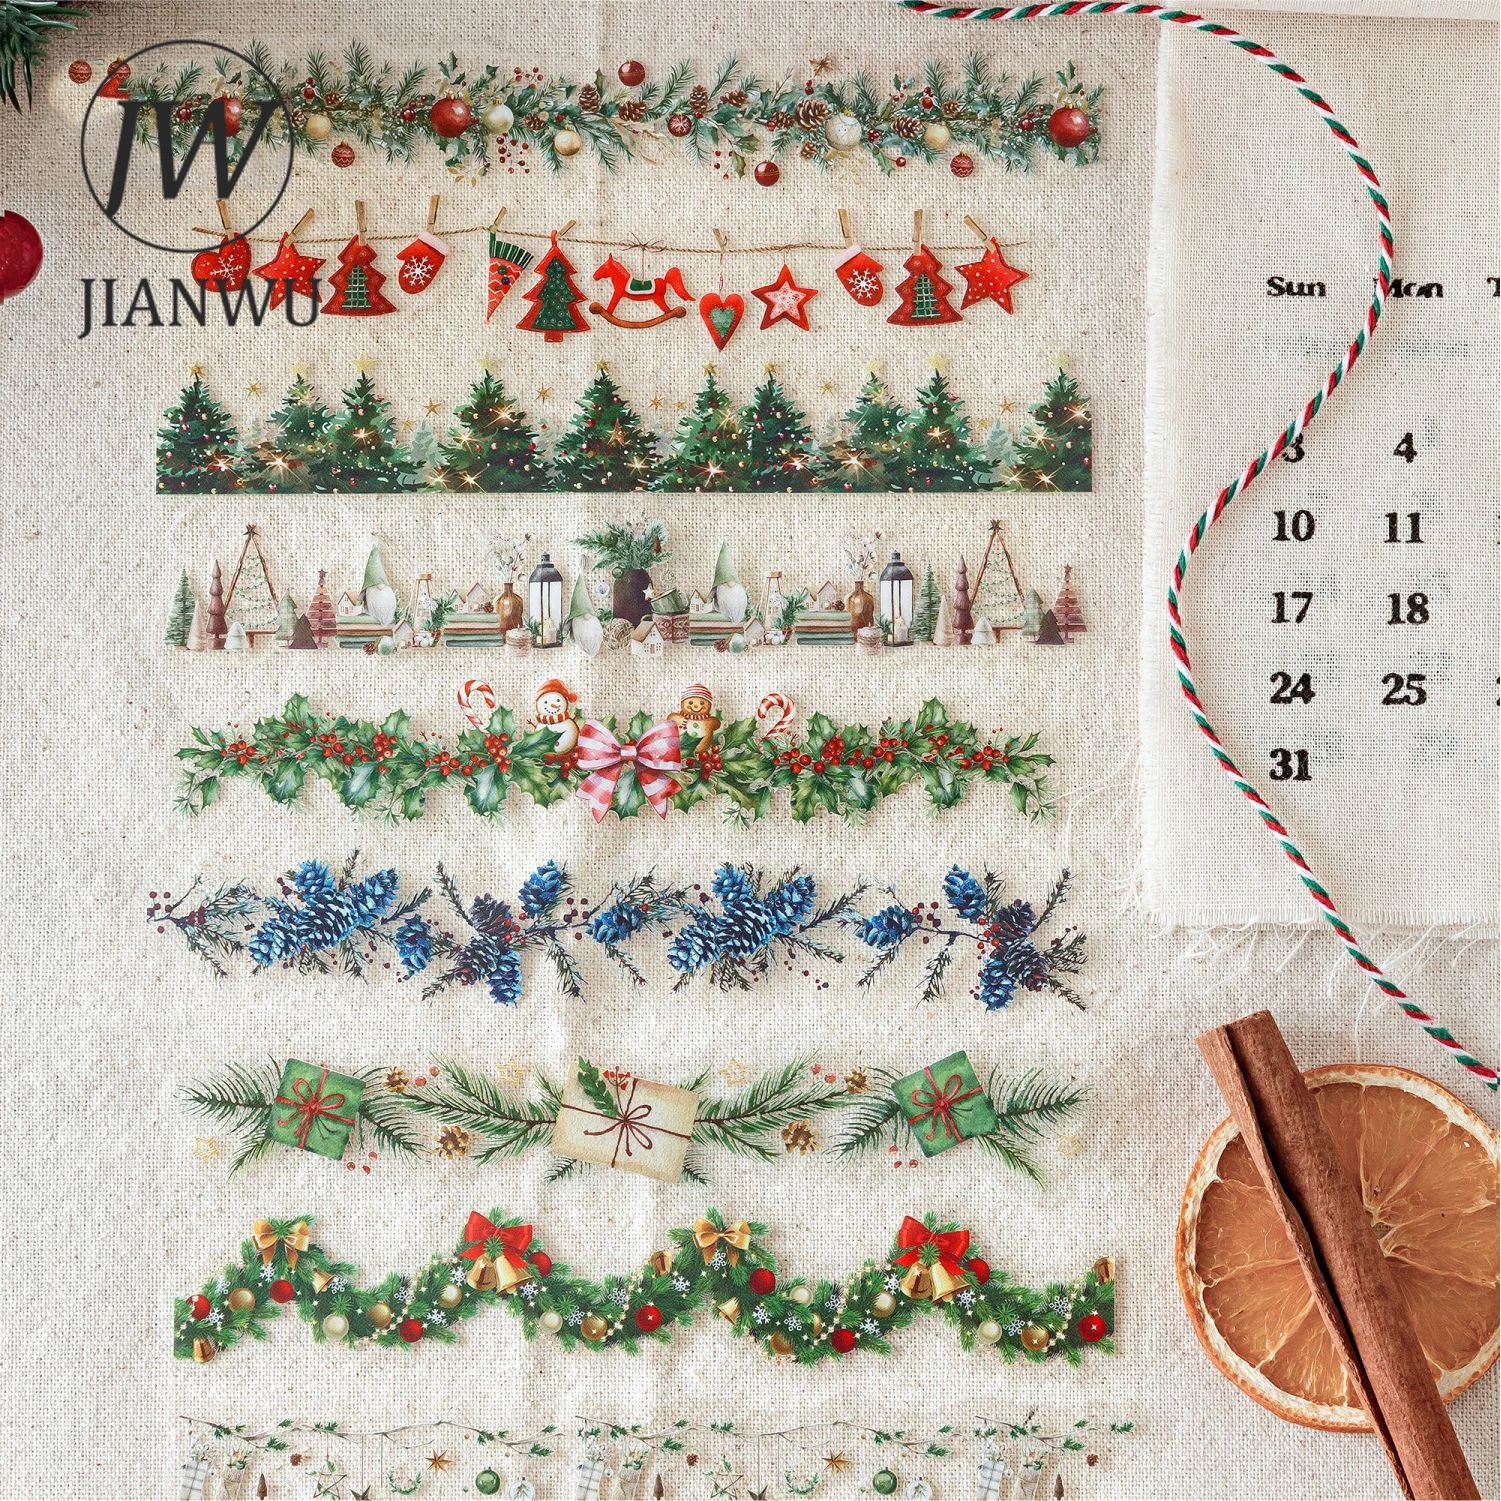 JW
JIANWU
Sun Mon
3 4
10 11
17 18
24 25
31